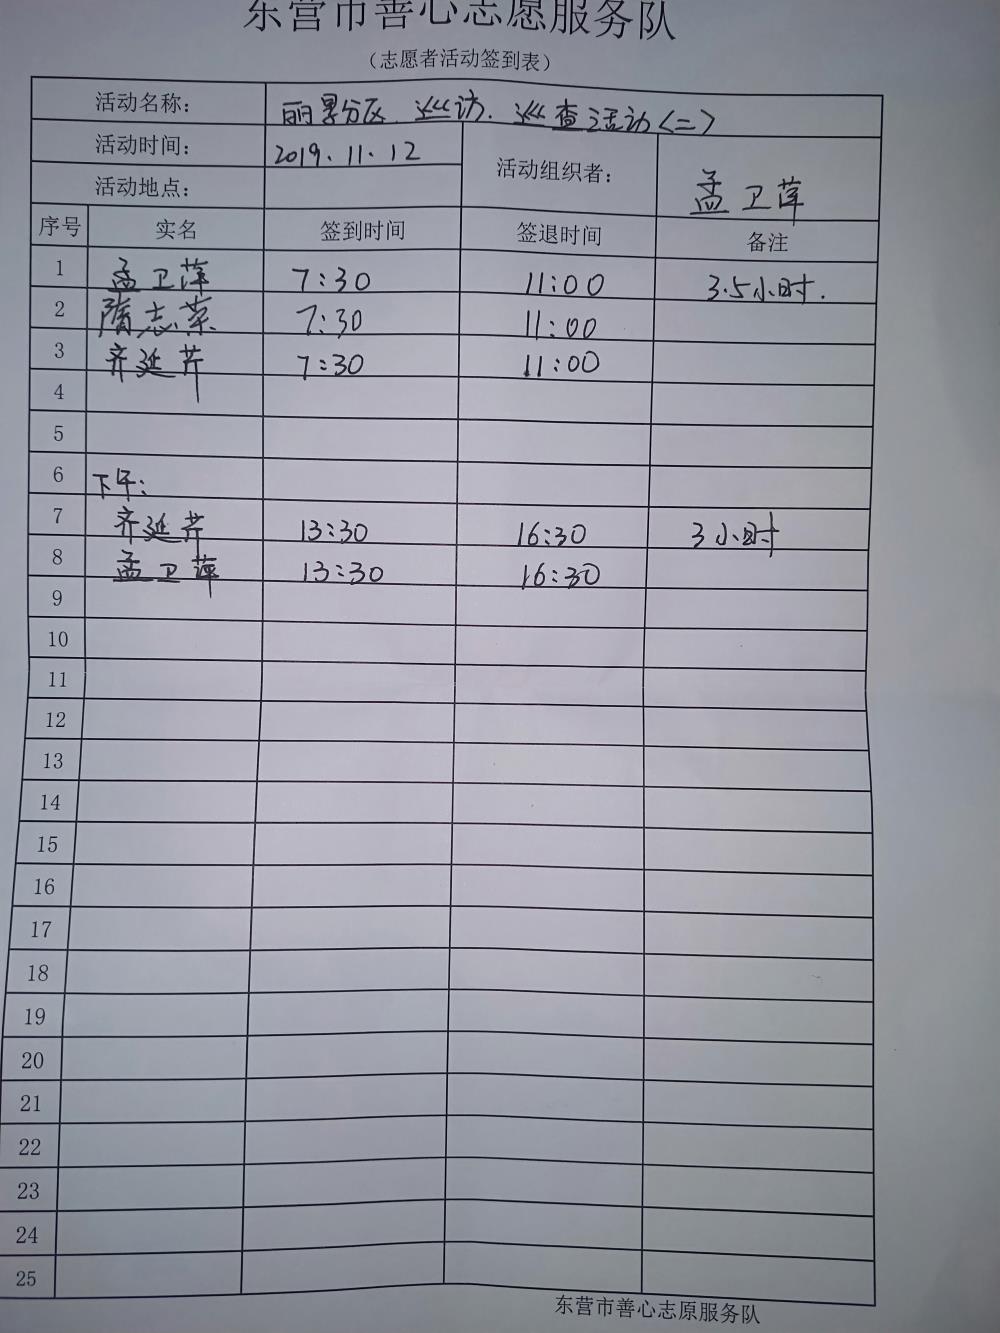 东营市善心志愿服务队
（志愿者活动签到表）
活动名称： 丽景分区、巡访、巡查活动（二）
活动时间： 2019.11.12 活动组织者： 孟卫萍
活动地点：
序号 实名 签到时间 签退时间 备注
1 孟卫萍 7:30 11:00 3.5小时.
2 隋志荣 7:30 11:00
3 齐延芹 7:30 11:00
4
5
6 下午：
7 齐延芹 13:30 16:30 3小时
8 孟卫萍 13:30 16:30
9
10
11
12
13
14
15
16
17
18
19
20
21
22
23
24
25
东营市善心志原服务队